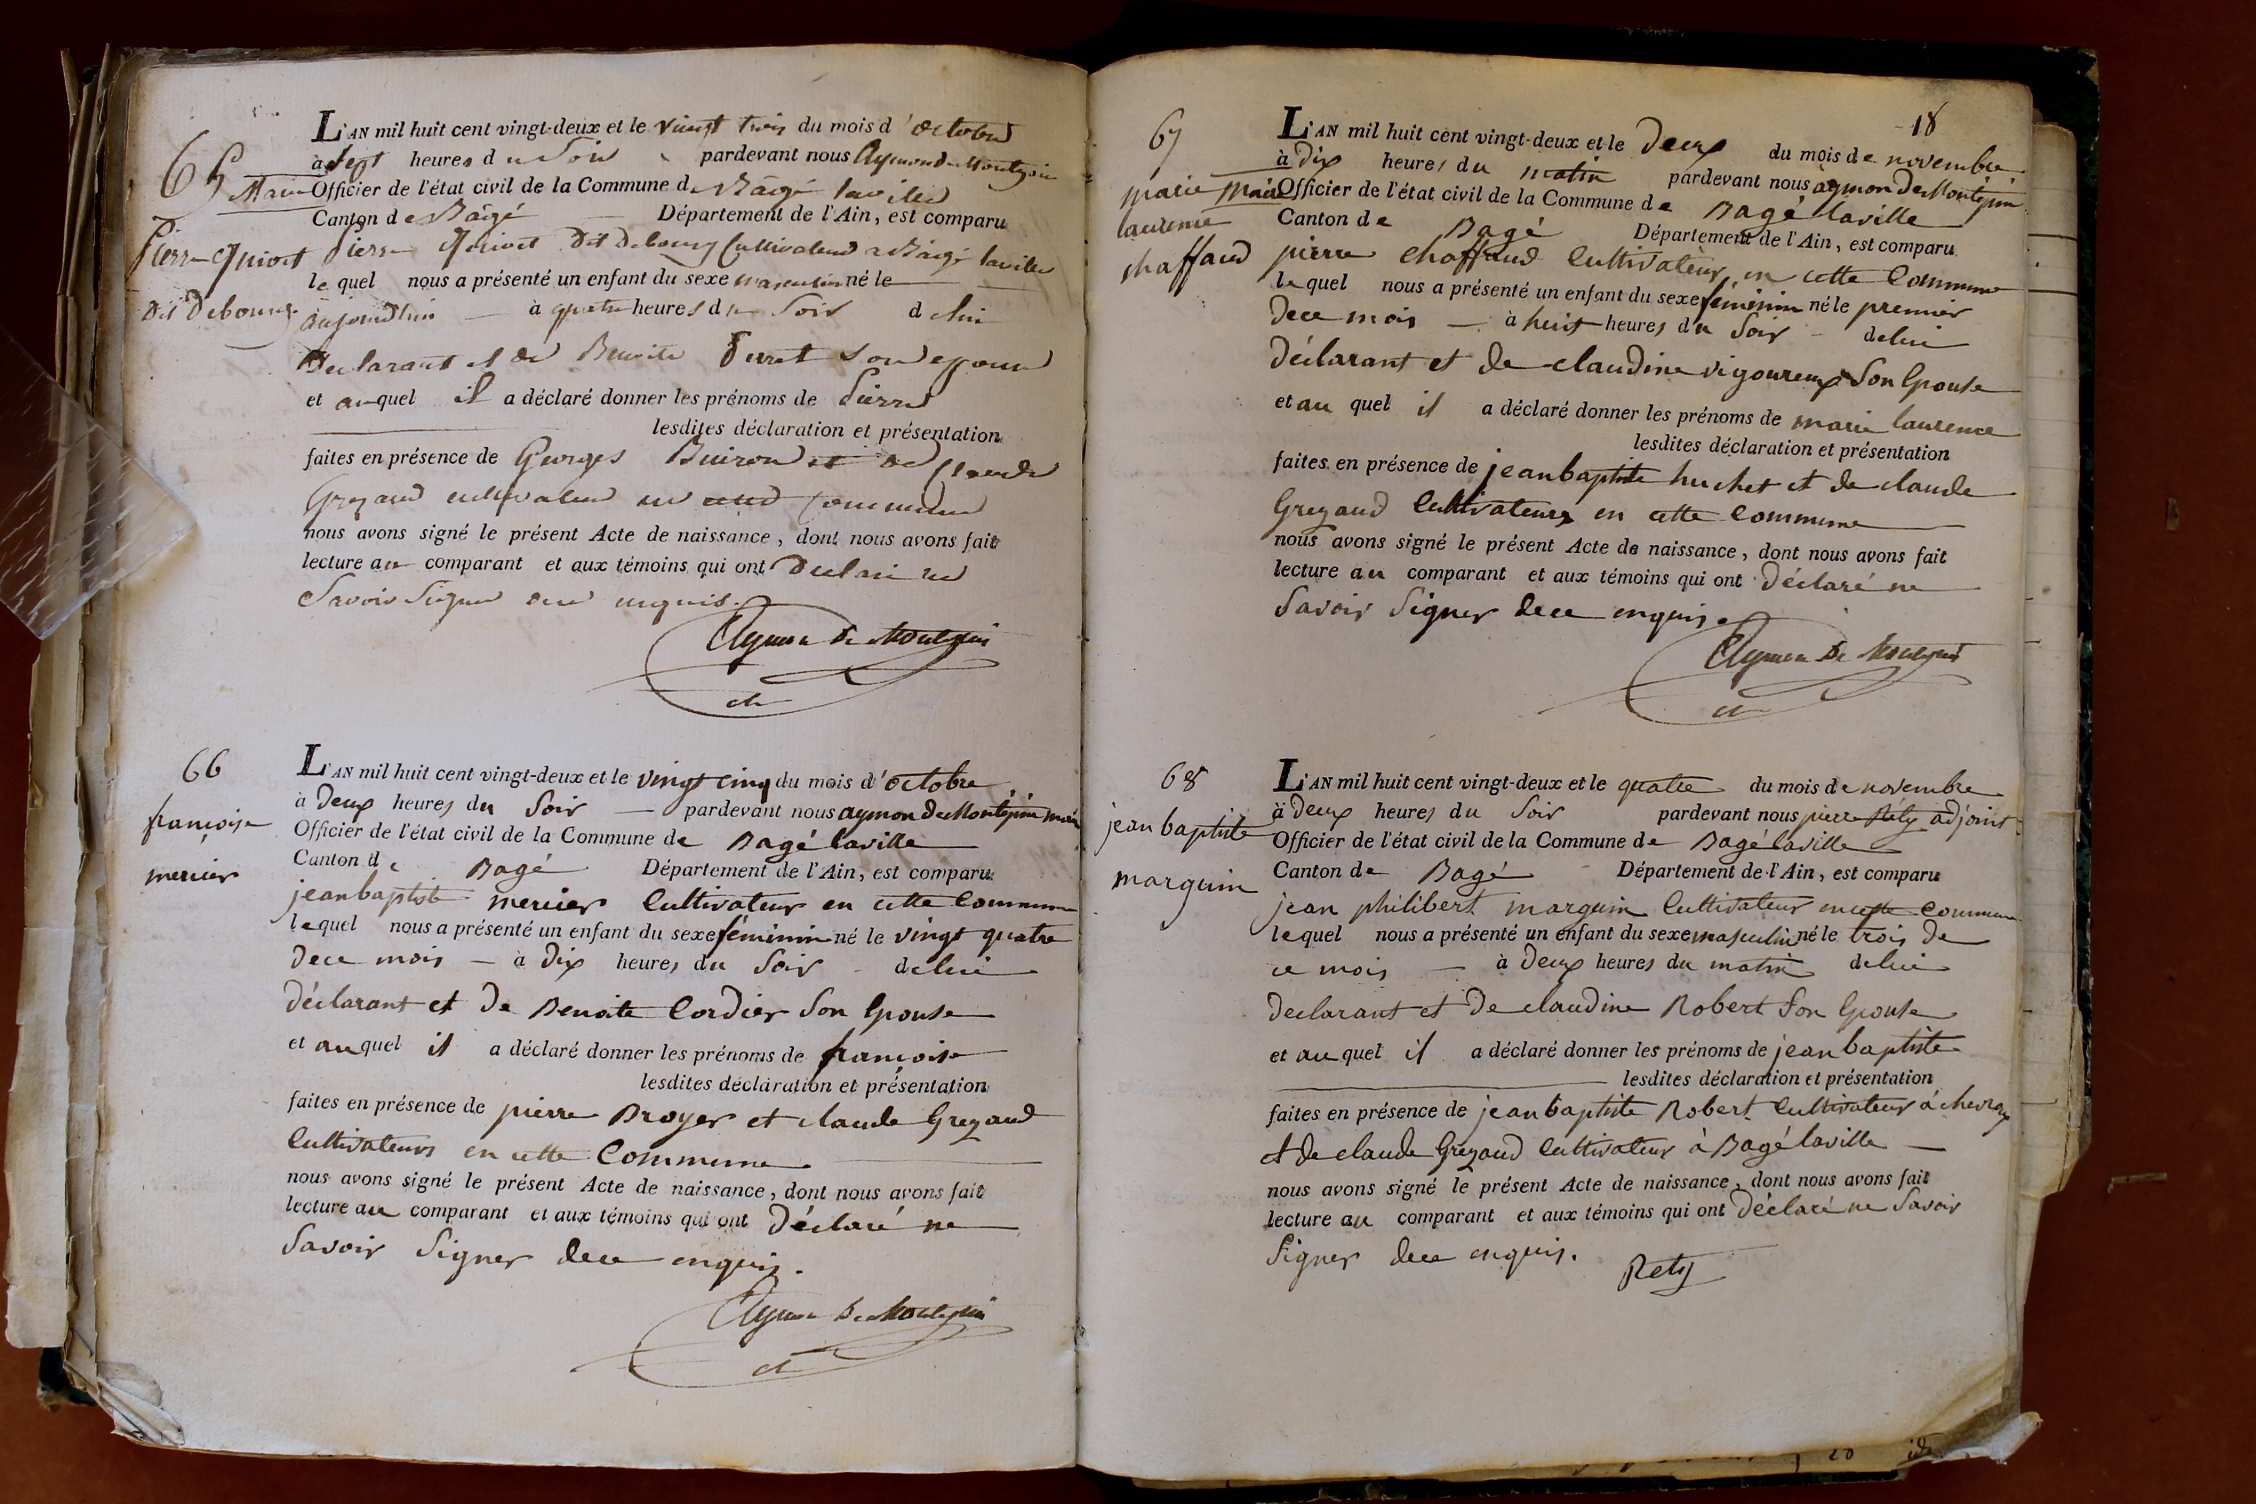 65
Pierre Guiot
dit Debourg
L'AN mil huit cent vingt-deux et le vingt trois du mois d'octobre
à sept heures du soir pardevant nous Aymon de Montépin
Maire Officier de l'état civil de la Commune de Bâgé laville
Canton de Bâgé Département de l'Ain, est comparu
pierre dit Debourg Cultivateur a Bâgé laville
lequel nous a présenté un enfant du sexe masculin né le
aujourdhui à quatre heures du soir de lui
Declarant et de Benoite son epouse
et auquel il a déclaré donner les prénoms de Pierre
lesdites déclaration et présentation
faites en présence de Georges Buiron et de Claude
Gregaud cultivateur en cette Commune
nous avons signé le présent Acte de naissance, dont nous avons fait
lecture au comparant et aux témoins qui ont declaré ne
savoir signer enquis.
Aymon De Montépin
66
françoise
mercier
L'AN mil huit cent vingt-deux et le vingt cinq du mois d'octobre
à deux heures du soir pardevant nous aymon de Montépin maire
Officier de l'état civil de la Commune de Bagé laville
Canton de Bagé Département de l'Ain, est comparu
jean baptiste mercier Cultivateur en cette Commune
lequel nous a présenté un enfant du sexe féminin né le vingt quatre
de ce mois à dix heures du soir de lui
déclarant et de Benoite Cordier son Epouse
et auquel il a déclaré donner les prénoms de françoise
lesdites déclaration et présentation
faites en présence de pierre Broyer et claude Gregaud
Cultivateurs en cette Commune
nous avons signé le présent Acte de naissance, dont nous avons fait
lecture au comparant et aux témoins qui ont déclaré ne
savoir signer de ce enquis.
Aymon De Montépin
18
67
marie
laurence
chaffaud
L'AN mil huit cent vingt-deux et le deux du mois de novembre
à dix heures du matin pardevant nous aymon de Montépin
Maire Officier de l'état civil de la Commune de Bagé laville
Canton de Bagé Département de l'Ain, est comparu
pierre chaffaud Cultivateur en cette Commune
lequel nous a présenté un enfant du sexe féminin né le premier
de ce mois à huit heures du soir de lui
déclarant et de claudine vigoureux son Epouse
et au quel il a déclaré donner les prénoms de marie laurence
lesdites déclaration et présentation
faites en présence de jean baptiste huchet et de claude
Gregaud Cultivateurs en cette Commune
nous avons signé le présent Acte de naissance, dont nous avons fait
lecture au comparant et aux témoins qui ont déclaré ne
savoir signer de ce enquis.
Aymon De Montépin
68
jean baptiste
marguin
L'AN mil huit cent vingt-deux et le quatre du mois de novembre
à deux heures du soir pardevant nous pierre Réty adjoint
Officier de l'état civil de la Commune de Bagé laville
Canton de Bagé Département de l'Ain, est comparu
jean philibert marguin Cultivateur en cette Commune
lequel nous a présenté un enfant du sexe masculin né le trois de
ce mois à deux heures du matin de lui
declarant et de claudine Robert son Epouse
et auquel il a déclaré donner les prénoms de jean baptiste
lesdites déclaration et présentation
faites en présence de jean baptiste Robert Cultivateur à chevroux
et de claude Gregaud Cultivateur à Bagé laville
nous avons signé le présent Acte de naissance, dont nous avons fait
lecture au comparant et aux témoins qui ont déclaré ne savoir
signer de ce enquis.
Rety